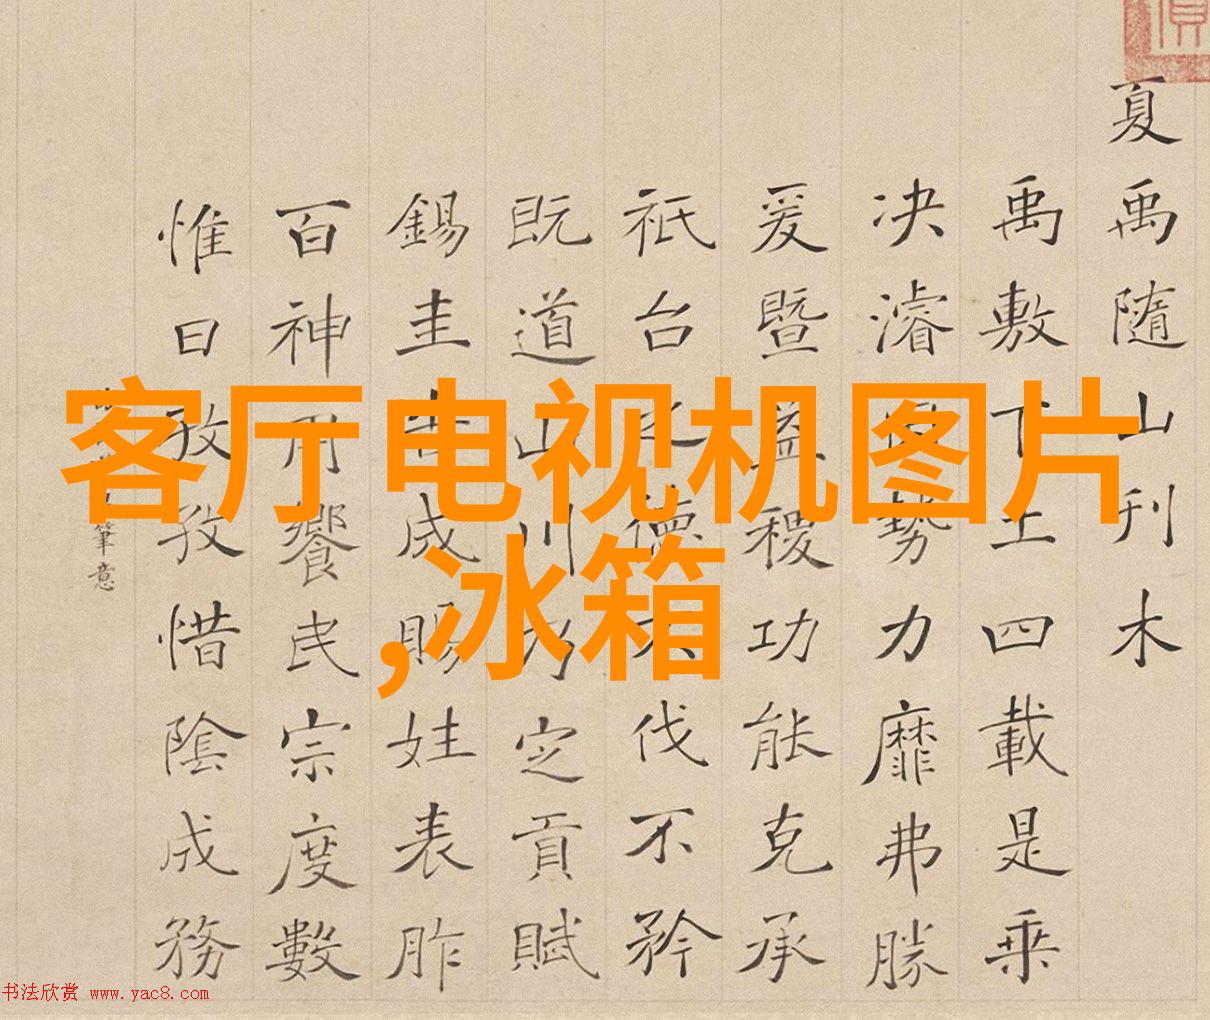 夏禹随山刊木
禹敷下土四載是乗
决濬
勢力靡弗勝
爰暨益稷功能克承
祇台
德
伐不矜
既道山川
定貢賦
錫圭
成賜娃表胙
百神用饗民宗度數
惟日孜孜惜陰成務
筆意
客厅电视机图片
,冰箱
书法欣赏 www.yac8.com